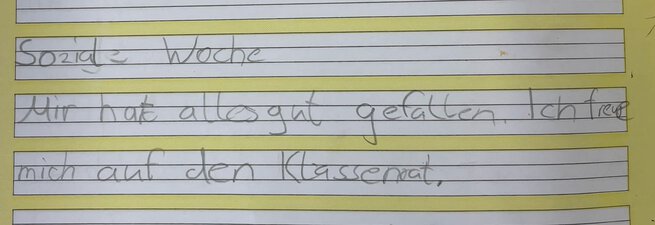 Soziale Woche
Mir hat alles gut gefallen. Ich freue
mich auf den Klassenrat.